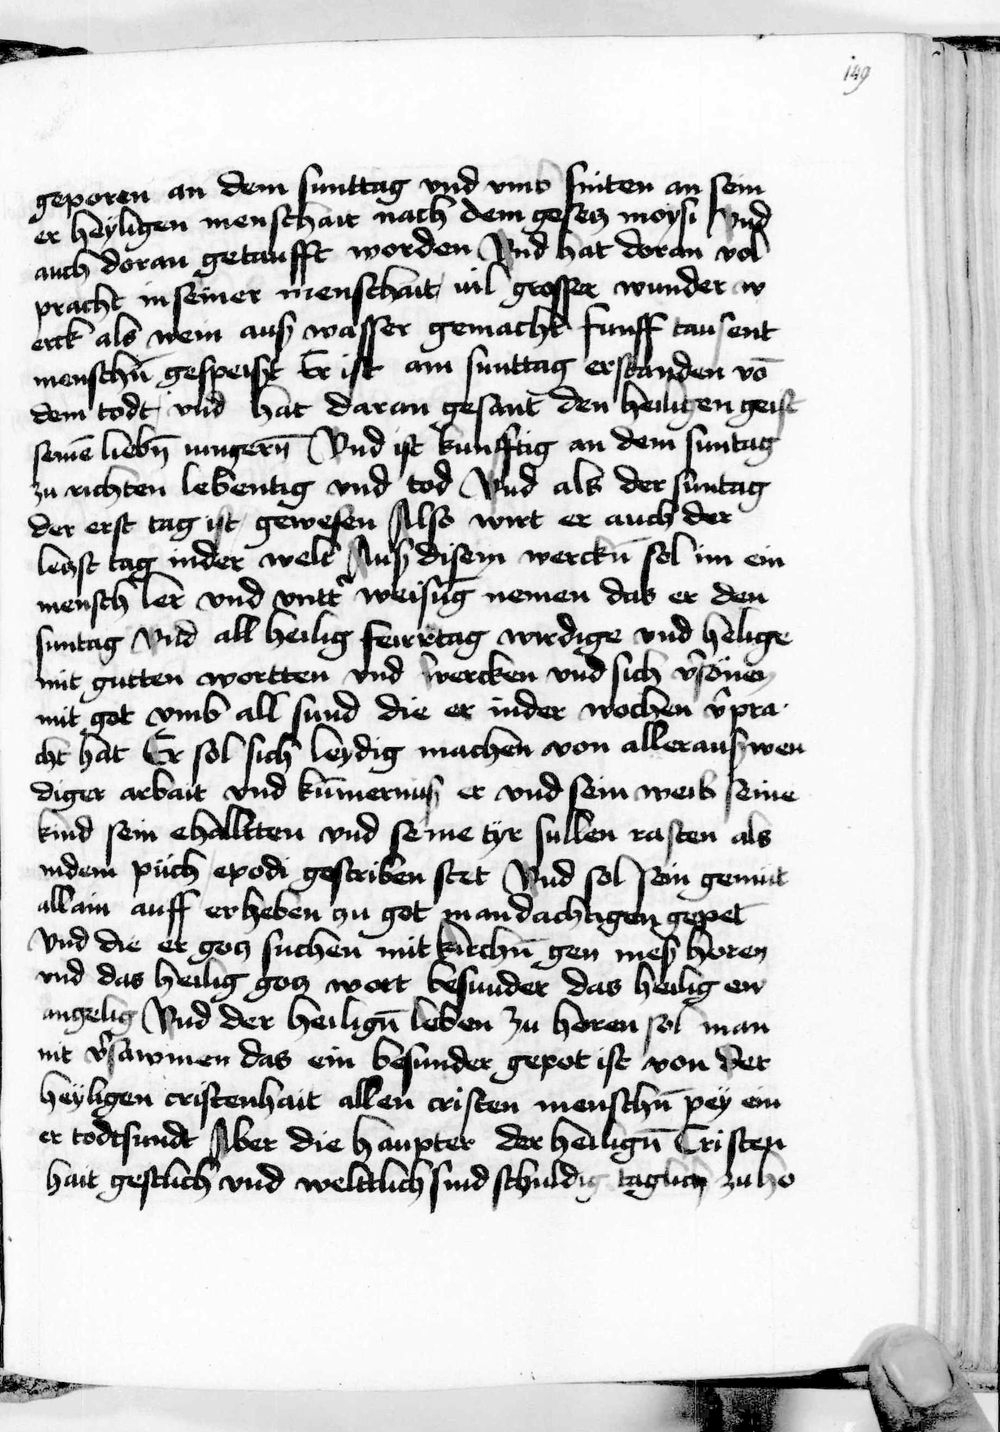 149
geporen an dem sunttag vnd vmb sniten an sein
er heyligen menschait nach dem gesetz moysi Vnd
auch doran getaufft worden Vnd hat doran vol
pracht in seiner menschait vil grosser wunder w
erck als wein aus wasser gemacht funff tausent
menschn̄ gespeist Er ist am sunttag erstanden vō
dem todt vnd hat daran gesant den heiligen geist
seinē liebn̄ iungern̄ Vnd ist kunfftig an dem suntag
zu richten lebentig vnd tod Vnd als der suntag
der erst tag ist gewesen Also wirt er auch der
letzst tag inder welt Aus disem werckn̄ sol im ein
mensch ler vnd vntt̄ weisūg nemen das er den
suntag Vnd all heilig feirrtag wirdige vnd helige
mit gutten wortten vnd wercken vnd sich v̄sönen
mit got vmb all sund die er inder wochen v̄pra
cht hat Er sol sich leydig machen von allerauswen
diger arbait vnd kūmernus er vnd sein weib seine
kind sein ehalltten vnd seine tyr sullen rasten als
indem püch exodi gescriben stet Vnd sol sein gemüt
allain auff erheben zu got in andachtigen gepet
Vnd die er gotz suchen mit kirchn̄ gen mess horen
vnd das heilig gotz wort besunder das heilig ew
angelig Vnd der heilign̄ leben zu horen sol man
nit v̄sawmen das ein besunder gepot ist von der
heyligen cristenhait allen cristen menschn̄ pey ein
er todtsundt Aber die haupter der heilign̄ Cristen
hait gestlich vnd welttlich sind schuldig taglich zu ho